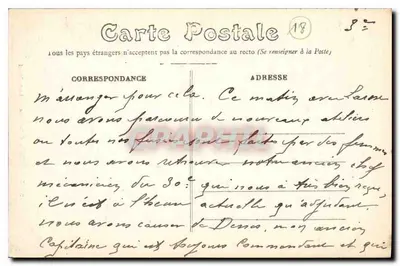 Carte Postale
18
3e
Tous les pays étrangers n'acceptent pas la correspondance au recto (Se renseigner à la Poste)
CORRESPONDANCE
ADRESSE
m'arranger pour cela. Ce matin avec
nous avons parcouru de nouveaux ateliers
ou toutes nos fusées sont faites par des femmes
et nous avons retrouvé notre ancien chef
mécanicien du 30e qui nous a très bien reçu,
il est à l'heure actuelle qu'adjudant.
nous avons causer de mon ancien
Capitaine qui est toujours Commandant et qui